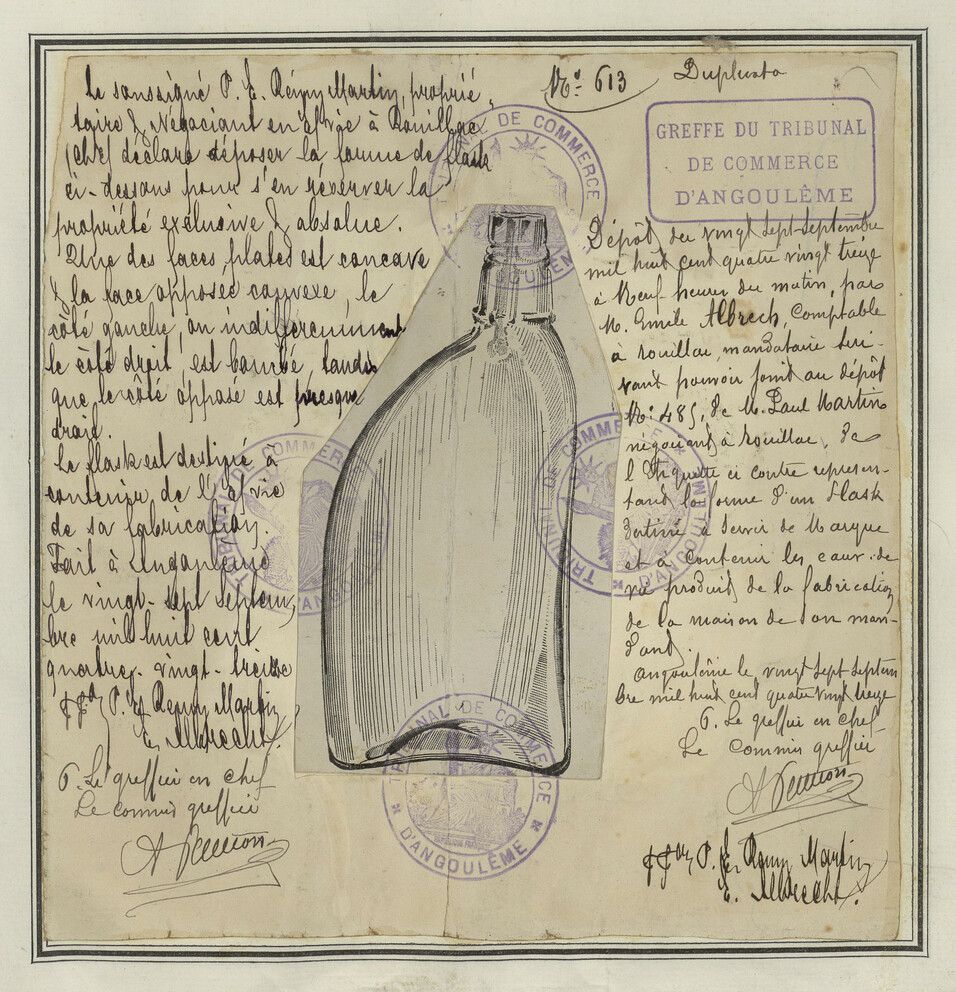 Le soussigné P. E. Rémy Martin, proprié-
taire & Négociant en eaux de vie à Rouillac
(Chte) déclare déposer la forme de flask
ci-dessous pour s'en réserver la
propriété exclusive & absolue.
Une des faces plates est concave
& la face opposée convexe, le
côté gauche, ou indifféremment
le côté droit, est bombé, tandis
que le côté opposé est presque
droit.
Le flask est destiné à
contenir de l'eau de vie
de sa fabrication.
Fait à Angoulême
le vingt-sept Septem-
bre mil huit cent
quatre-vingt-treize
P. E. Remy Martin
E. Albrecht.
Le greffier en chef
Le commis greffier
No. 613
Duplicata
GREFFE DU TRIBUNAL
DE COMMERCE
D'ANGOULÊME
Dépôt du vingt sept Septembre
mil huit cent quatre vingt treize
à Neuf heures du matin, par
M. Emile Albrech, Comptable
à Rouillac, mandataire sui-
vant pouvoir joint au dépôt
No. 485, de M. Paul Martin
négociant à Rouillac, de
l'Etiquette ci contre représen-
tant la forme d'un Flask
destiné à servir de Marque
et à contenir les eaux-de
vie produits de la fabrication
de la maison de son man-
dant.
Angoulême le vingt sept septem
bre mil huit cent quatre vingt treize
Le greffier en chef
Le commis greffier
P. E. Remy Martin
E. Albrecht.
TRIBUNAL DE COMMERCE
D'ANGOULÊME
TRIBUNAL DE COMMERCE
D'ANGOULÊME
TRIBUNAL DE COMMERCE
D'ANGOULÊME
TRIBUNAL DE COMMERCE
D'ANGOULÊME